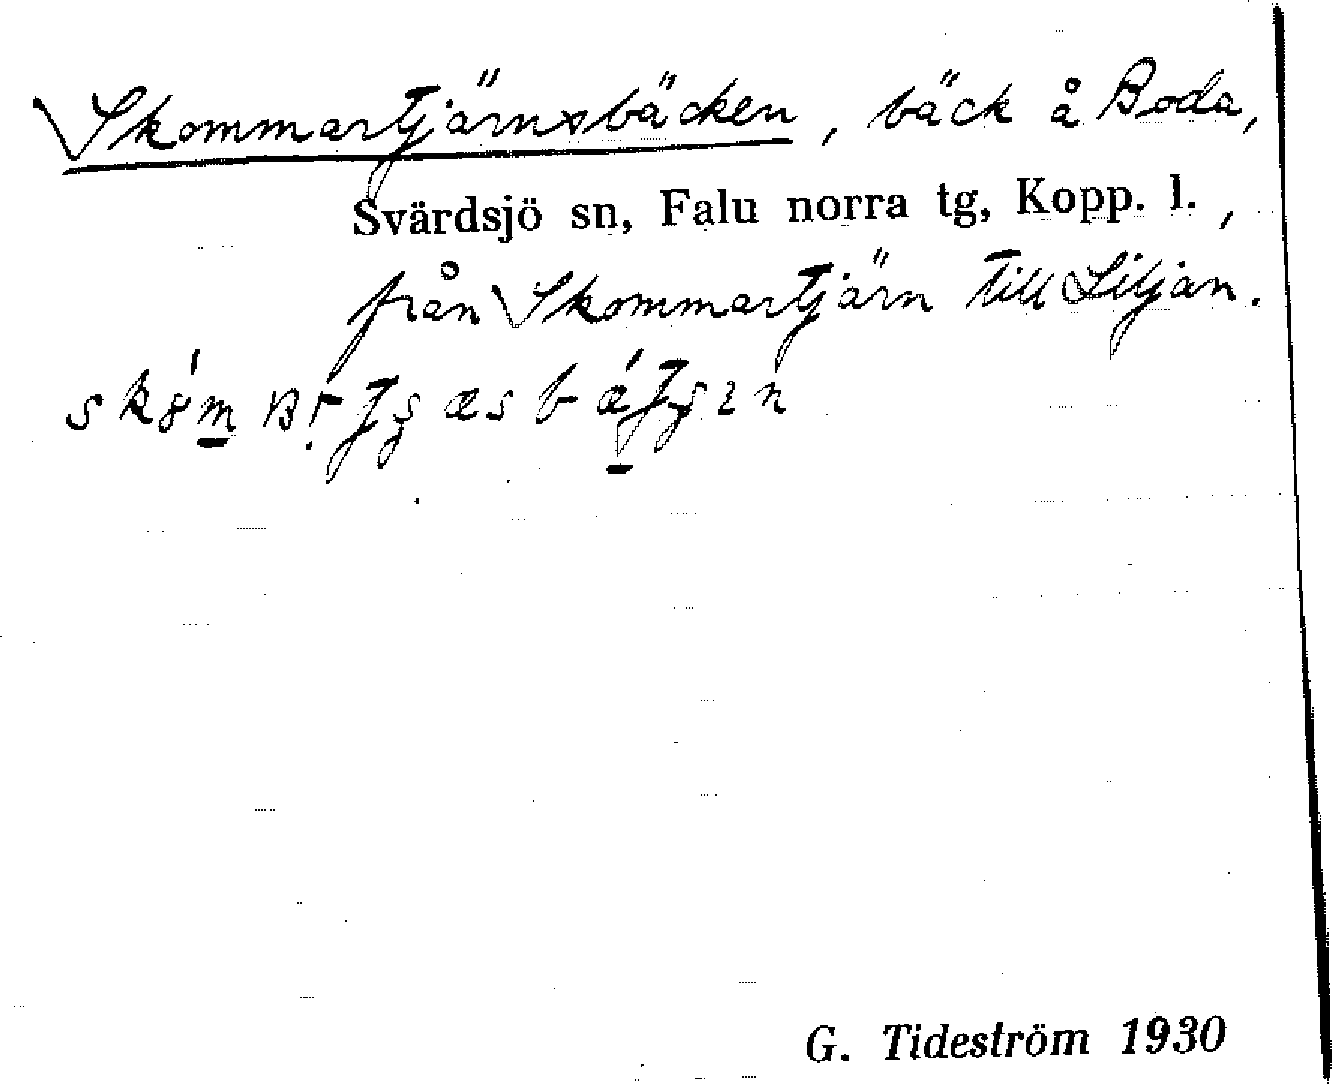 Skommartjärnsbäcken, bäck å Boda,
Svärdsjö sn, Falu norra tg, Kopp. l.,
från Skommartjärn till Liljan.
G. Tideström 1930